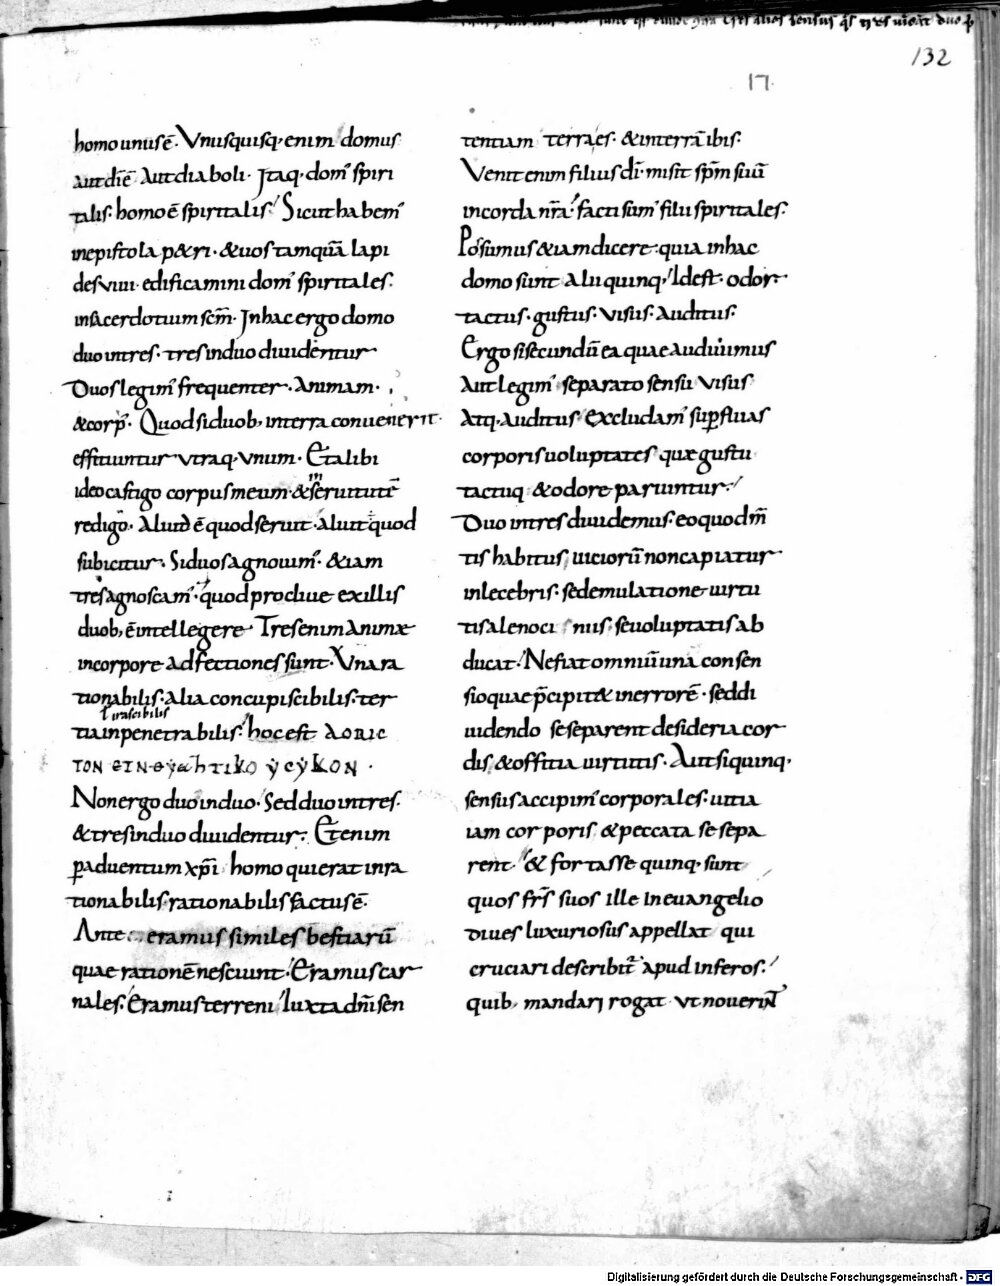 132
17
homo unus ē· Vnusquisq· enim domus
aut dī ē Aut diaboli· Itaq· dom' spiri
talis· homo ē spiritalis· Sicut habem'
inepistola p&ri· &uos tamquā lapi
des viui· edificamini dom' spiritales·
insacerdotium scm̄· Inhac ergo domo
duo intres· tres induo diuidentur
Duos legim' frequenter· Animam·
&corp'· Quod si duob; interra conuenerit·
effitiuntur vtraq· vnum· Et alibi
ideo castigo corpus meum· & seruitutē
redigo· Aliud ē quod seruit· aliut quod
subicitur· Si duos agnouim'· &iam
tres agnoscam'· quod procliue ex illis
duob; ē intellegere Tres enim Animæ
incorpore adfectiones sunt· Vna ra
tionabilis· alia concupiscibilis· ter
ł irascibilis
tia inpenetrabilis· hoc est
Non ergo duo induo· Sed duo intres·
& tres induo diuidentur· Etenim
peraduentum xp̄i homo qui erat inra
tionabilis· rationabilis factus ē·
Ante eramus similes bestiarū
quae rationē nesciunt· Eramus car
nales· Eramus terreni Iuxta dn̄i sen
tentiam terra es· & interrā ibis·
Venit enim filius dī· misit spm̄ suū
in corda nr̄a· facti sum' filii spiritales·
Possumus &iam dicere· quia inhac
domo sunt alii quinq· Idest· odor·
tactus· gustus· visus· Auditus·
Ergo si secundū ea quae audiuimus
Aut legim' separato sensu visus
Atq· auditus Excludam' superfluas
corporis uoluptates quæ gustu
tactuq· & odore pariuntur·
Duo intres diuidemus· eo quod m̄
tis habitus uiciorū non capiatur
inlecebris· sed emulatione uirtu
tis a lenociniis seuoluptatis ab
ducat· Ne fiat omniū una consen
sio quae p̄cipit& in errorē· sed di
uidendo se separent desideria cor
dis· & offitia uirtutis· Aut si quinq·
sensus accipim' corporales· uitia
iam corporis· & peccata se sepa
rent· & fortasse quinq· sunt
quos fr̄s suos ille In euangelio
Diues luxuriosus appellat qui
cruciari describit̄ apud inferos·
quib; mandari rogat vt nouerint
Digitalisierung gefördert durch die Deutsche Forschungsgemeinschaft - DFG